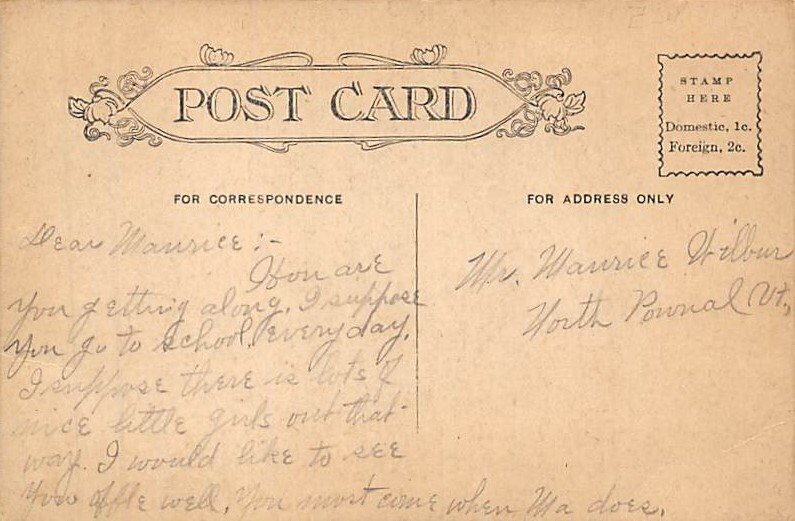 POST CARD
STAMP
HERE
Domestic, 1c.
Foreign, 2c.
FOR CORRESPONDENCE
Dear Maurice:-
How are
you getting along. I suppose
you go to school everyday.
I suppose there is lots of
nice little girls out that
way. I would like to see
you offle well. You must come when Ma does.
FOR ADDRESS ONLY
Mr. Maurice Wilbur
North Pownal Vt.,